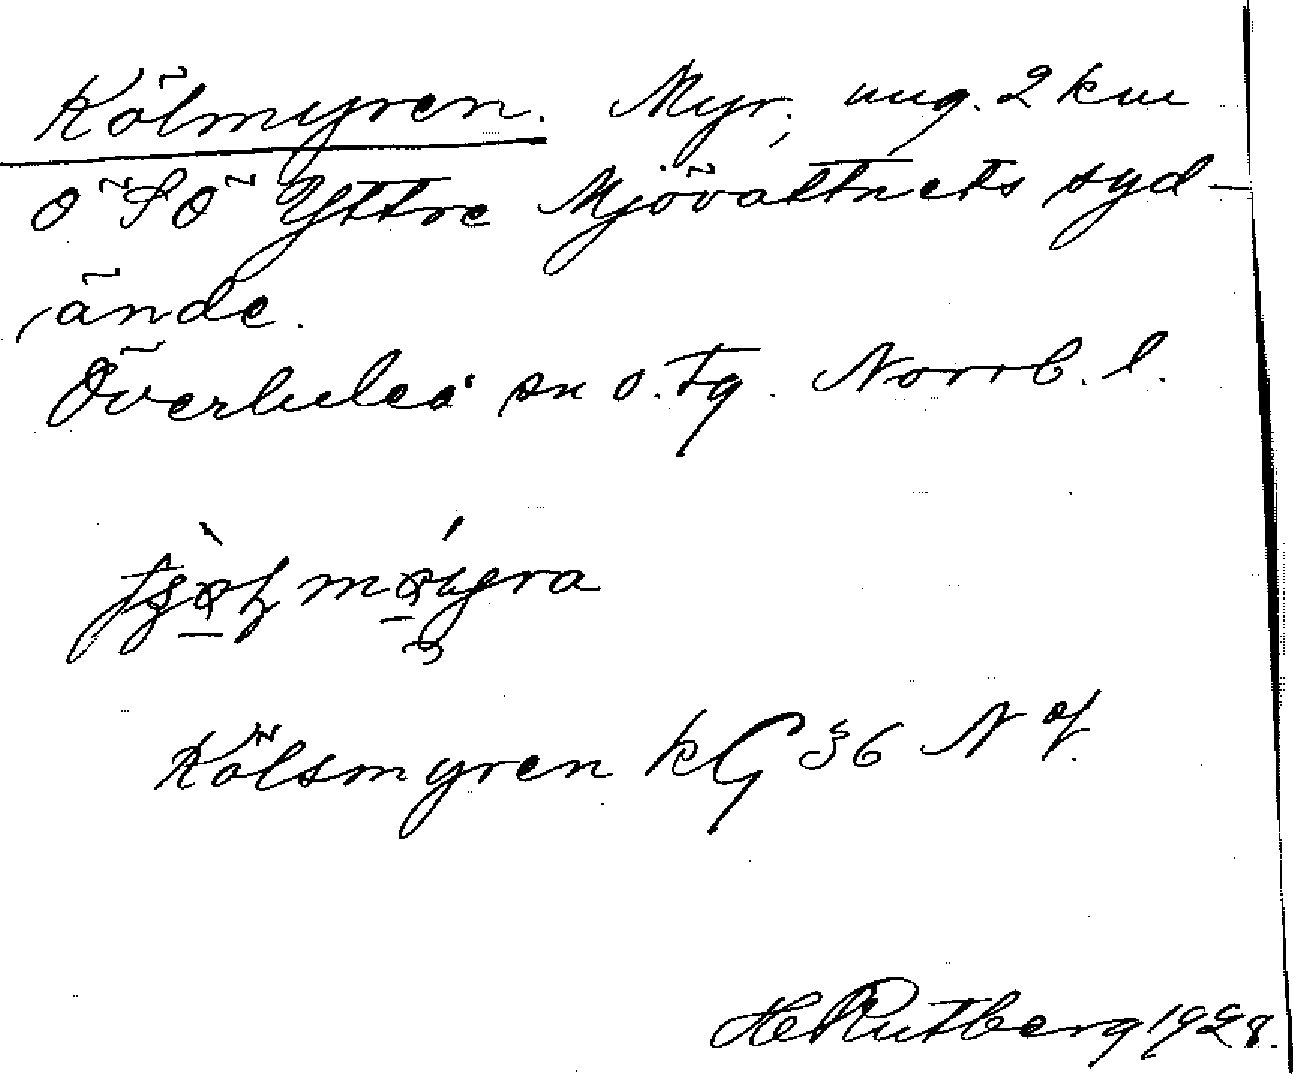 Kölmyren. Myr, ung. 2 km
ÖSÖ Yttre Mjövattnets syd-
ände.
Överluleå sn o. tg. Norrb. l.
Kölsmyren KG 36 N of.
HeRutberg 1928.